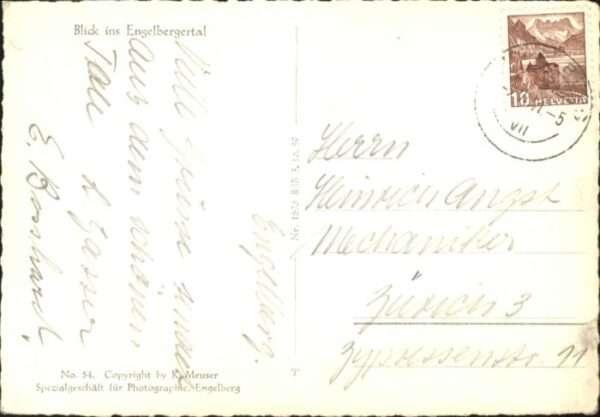 Blick ins Engelbergertal
Viele Grüsse
aus dem schönen
Tale
E. Bosshard.
Engelberg.
No. 54. Copyright by K. Meuser
Spezialgeschäft für Photographie Engelberg
HELVETIA
10
VII
Herrn
Heinrich Angst
Mechaniker
Zürich 3
Zypressenstr. 11